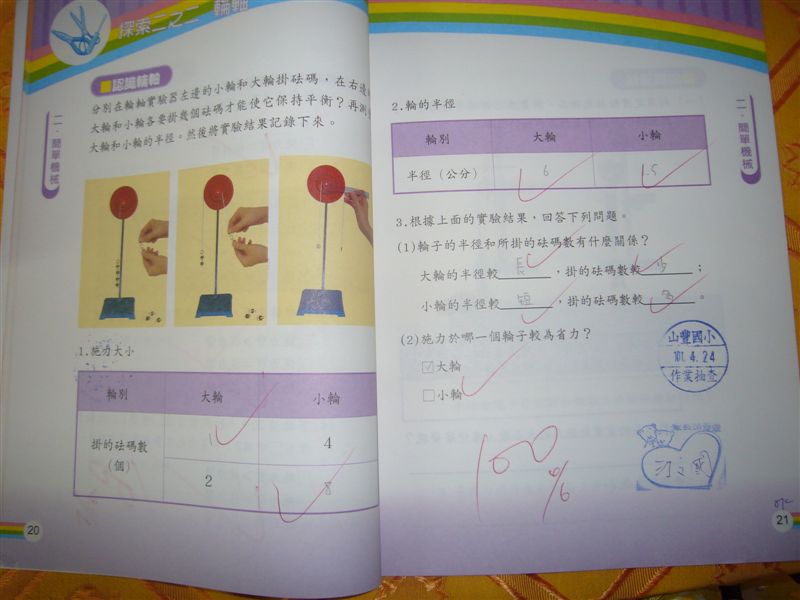 探索二之二 輪軸
■認識輪軸
分別在輪軸實驗器左邊的小輪和大輪掛砝碼,在右邊
大輪和小輪各要掛幾個砝碼才能使它保持平衡?再測
大輪和小輪的半徑。然後將實驗結果記錄下來。
二·簡單機械
1.施力大小
輪別 大輪 小輪
掛的砝碼數
(個)
1 4
2 8
20
2.輪的半徑
輪別 大輪 小輪
半徑(公分) 6 1.5
3.根據上面的實驗結果,回答下列問題。
(1)輪子的半徑和所掛的砝碼數有什麼關係?
大輪的半徑較長,掛的砝碼數較少;
小輪的半徑較短,掛的砝碼數較多。
(2)施力於哪一個輪子較為省力?
☑大輪
□小輪
山豐國小
101.4.24
作業抽查
100%
二·簡單機械
21